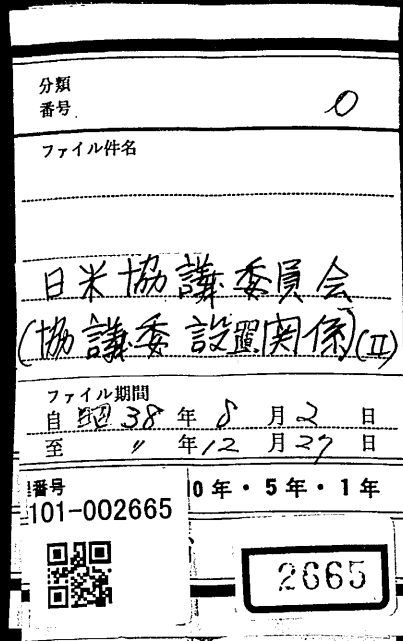 分類
番号 0
ファイル件名
日米協議委員会
(協議委設置関係)(II)
ファイル期間
自 昭 38 年 8 月 2 日
至 〃 年 12 月 27 日
番号
0年・5年・1年
101-002665
2665